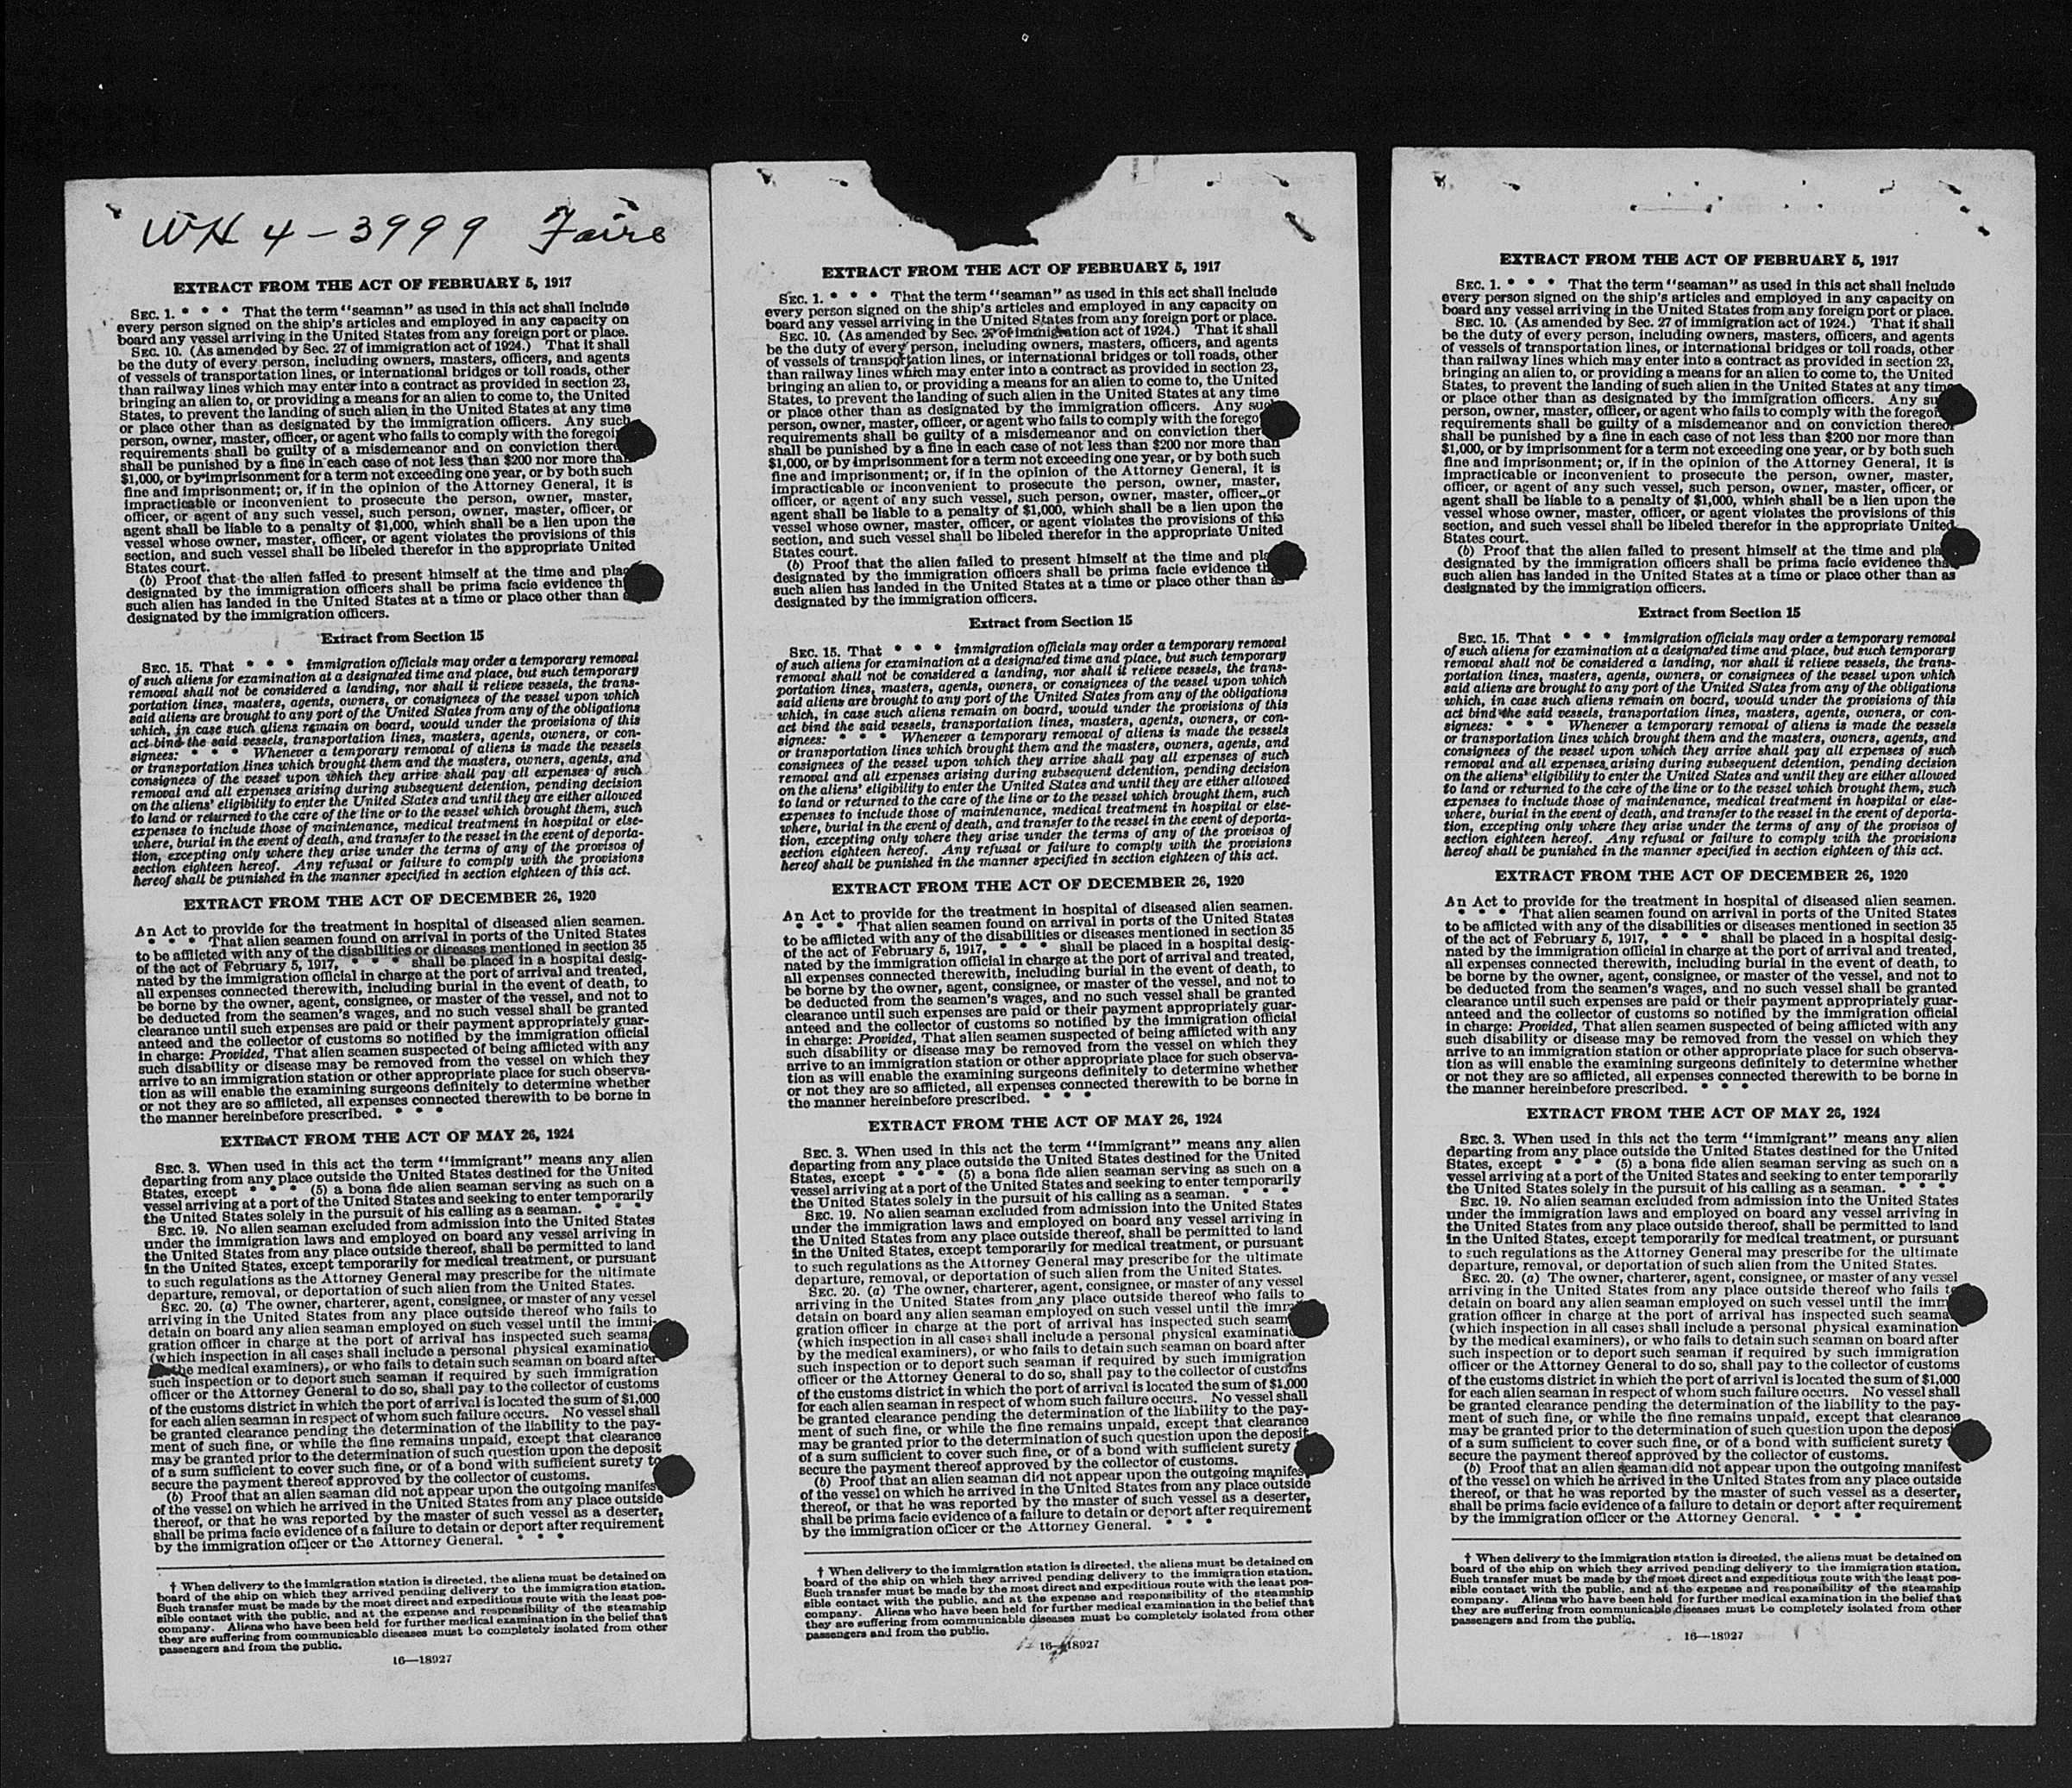 WH 4-3999 Faire
EXTRACT FROM THE ACT OF FEBRUARY 5, 1917
SEC. 1. * * * That the term "seaman" as used in this act shall include
every person signed on the ship's articles and employed in any capacity on
board any vessel arriving in the United States from any foreign port or place.
SEC. 10. (As amended by Sec. 27 of immigration act of 1924.) That it shall
be the duty of every person, including owners, masters, officers, and agents
of vessels of transportation lines, or international bridges or toll roads, other
than railway lines which may enter into a contract as provided in section 23,
bringing an alien to, or providing a means for an alien to come to, the United
States, to prevent the landing of such alien in the United States at any time
or place other than as designated by the immigration officers. Any such
person, owner, master, officer, or agent who fails to comply with the foregoi
requirements shall be guilty of a misdemeanor and on conviction there
shall be punished by a fine in each case of not less than $200 nor more than
$1,000, or by imprisonment for a term not exceeding one year, or by both such
fine and imprisonment; or, if in the opinion of the Attorney General, it is
impracticable or inconvenient to prosecute the person, owner, master,
officer, or agent of any such vessel, such person, owner, master, officer, or
agent shall be liable to a penalty of $1,000, which shall be a lien upon the
vessel whose owner, master, officer, or agent violates the provisions of this
section, and such vessel shall be libeled therefor in the appropriate United
States court.
(b) Proof that the alien failed to present himself at the time and plac
designated by the immigration officers shall be prima facie evidence th
such alien has landed in the United States at a time or place other than
designated by the immigration officers.
Extract from Section 15
SEC. 15. That * * * immigration officials may order a temporary removal
of such aliens for examination at a designated time and place, but such temporary
removal shall not be considered a landing, nor shall it relieve vessels, the trans-
portation lines, masters, agents, owners, or consignees of the vessel upon which
said aliens are brought to any port of the United States from any of the obligations
which, in case such aliens remain on board, would under the provisions of this
act bind the said vessels, transportation lines, masters, agents, owners, or con-
signees: * * * Whenever a temporary removal of aliens is made the vessels
or transportation lines which brought them and the masters, owners, agents, and
consignees of the vessel upon which they arrive shall pay all expenses of such
removal and all expenses arising during subsequent detention, pending decision
on the aliens' eligibility to enter the United States and until they are either allowed
to land or returned to the care of the line or to the vessel which brought them, such
expenses to include those of maintenance, medical treatment in hospital or else-
where, burial in the event of death, and transfer to the vessel in the event of deporta-
tion, excepting only where they arise under the terms of any of the provisos of
section eighteen hereof. Any refusal or failure to comply with the provisions
hereof shall be punished in the manner specified in section eighteen of this act.
EXTRACT FROM THE ACT OF DECEMBER 26, 1920
An Act to provide for the treatment in hospital of diseased alien seamen.
* * * That alien seamen found on arrival in ports of the United States
to be afflicted with any of the disabilities or diseases mentioned in section 35
of the act of February 5, 1917, * * * shall be placed in a hospital desig-
nated by the immigration official in charge at the port of arrival and treated,
all expenses connected therewith, including burial in the event of death, to
be borne by the owner, agent, consignee, or master of the vessel, and not to
be deducted from the seamen's wages, and no such vessel shall be granted
clearance until such expenses are paid or their payment appropriately guar-
anteed and the collector of customs so notified by the immigration official
in charge: Provided, That alien seamen suspected of being afflicted with any
such disability or disease may be removed from the vessel on which they
arrive to an immigration station or other appropriate place for such observa-
tion as will enable the examining surgeons definitely to determine whether
or not they are so afflicted, all expenses connected therewith to be borne in
the manner hereinbefore prescribed. * * *
EXTRACT FROM THE ACT OF MAY 26, 1924
SEC. 3. When used in this act the term "immigrant" means any alien
departing from any place outside the United States destined for the United
States, except * * * (5) a bona fide alien seaman serving as such on a
vessel arriving at a port of the United States and seeking to enter temporarily
the United States solely in the pursuit of his calling as a seaman. * * *
SEC. 19. No alien seaman excluded from admission into the United States
under the immigration laws and employed on board any vessel arriving in
the United States from any place outside thereof, shall be permitted to land
in the United States, except temporarily for medical treatment, or pursuant
to such regulations as the Attorney General may prescribe for the ultimate
departure, removal, or deportation of such alien from the United States.
SEC. 20. (a) The owner, charterer, agent, consignee, or master of any vessel
arriving in the United States from any place outside thereof who fails to
detain on board any alien seaman employed on such vessel until the immi-
gration officer in charge at the port of arrival has inspected such seama
(which inspection in all cases shall include a personal physical examinatio
the medical examiners), or who fails to detain such seaman on board after
such inspection or to deport such seaman if required by such immigration
officer or the Attorney General to do so, shall pay to the collector of customs
of the customs district in which the port of arrival is located the sum of $1,000
for each alien seaman in respect of whom such failure occurs. No vessel shall
be granted clearance pending the determination of the liability to the pay-
ment of such fine, or while the fine remains unpaid, except that clearance
may be granted prior to the determination of such question upon the deposit
of a sum sufficient to cover such fine, or of a bond with sufficient surety to
secure the payment thereof approved by the collector of customs.
(b) Proof that an alien seaman did not appear upon the outgoing manifes
of the vessel on which he arrived in the United States from any place outside
thereof, or that he was reported by the master of such vessel as a deserter,
shall be prima facie evidence of a failure to detain or deport after requirement
by the immigration officer or the Attorney General. * * *
† When delivery to the immigration station is directed, the aliens must be detained on
board of the ship on which they arrived pending delivery to the immigration station.
Such transfer must be made by the most direct and expeditious route with the least pos-
sible contact with the public, and at the expense and responsibility of the steamship
company. Aliens who have been held for further medical examination in the belief that
they are suffering from communicable diseases must be completely isolated from other
passengers and from the public.
16—18927
EXTRACT FROM THE ACT OF FEBRUARY 5, 1917
SEC. 1. * * * That the term "seaman" as used in this act shall include
every person signed on the ship's articles and employed in any capacity on
board any vessel arriving in the United States from any foreign port or place.
SEC. 10. (As amended by Sec. 27 of immigration act of 1924.) That it shall
be the duty of every person, including owners, masters, officers, and agents
of vessels of transportation lines, or international bridges or toll roads, other
than railway lines which may enter into a contract as provided in section 23,
bringing an alien to, or providing a means for an alien to come to, the United
States, to prevent the landing of such alien in the United States at any time
or place other than as designated by the immigration officers. Any such
person, owner, master, officer, or agent who fails to comply with the forego
requirements shall be guilty of a misdemeanor and on conviction ther
shall be punished by a fine in each case of not less than $200 nor more than
$1,000, or by imprisonment for a term not exceeding one year, or by both such
fine and imprisonment; or, if in the opinion of the Attorney General, it is
impracticable or inconvenient to prosecute the person, owner, master,
officer, or agent of any such vessel, such person, owner, master, officer, or
agent shall be liable to a penalty of $1,000, which shall be a lien upon the
vessel whose owner, master, officer, or agent violates the provisions of this
section, and such vessel shall be libeled therefor in the appropriate United
States court.
(b) Proof that the alien failed to present himself at the time and pla
designated by the immigration officers shall be prima facie evidence th
such alien has landed in the United States at a time or place other than as
designated by the immigration officers.
Extract from Section 15
SEC. 15. That * * * immigration officials may order a temporary removal
of such aliens for examination at a designated time and place, but such temporary
removal shall not be considered a landing, nor shall it relieve vessels, the trans-
portation lines, masters, agents, owners, or consignees of the vessel upon which
said aliens are brought to any port of the United States from any of the obligations
which, in case such aliens remain on board, would under the provisions of this
act bind the said vessels, transportation lines, masters, agents, owners, or con-
signees: * * * Whenever a temporary removal of aliens is made the vessels
or transportation lines which brought them and the masters, owners, agents, and
consignees of the vessel upon which they arrive shall pay all expenses of such
removal and all expenses arising during subsequent detention, pending decision
on the aliens' eligibility to enter the United States and until they are either allowed
to land or returned to the care of the line or to the vessel which brought them, such
expenses to include those of maintenance, medical treatment in hospital or else-
where, burial in the event of death, and transfer to the vessel in the event of deporta-
tion, excepting only where they arise under the terms of any of the provisos of
section eighteen hereof. Any refusal or failure to comply with the provisions
hereof shall be punished in the manner specified in section eighteen of this act.
EXTRACT FROM THE ACT OF DECEMBER 26, 1920
An Act to provide for the treatment in hospital of diseased alien seamen.
* * * That alien seamen found on arrival in ports of the United States
to be afflicted with any of the disabilities or diseases mentioned in section 35
of the act of February 5, 1917, * * * shall be placed in a hospital desig-
nated by the immigration official in charge at the port of arrival and treated,
all expenses connected therewith, including burial in the event of death, to
be borne by the owner, agent, consignee, or master of the vessel, and not to
be deducted from the seamen's wages, and no such vessel shall be granted
clearance until such expenses are paid or their payment appropriately guar-
anteed and the collector of customs so notified by the immigration official
in charge: Provided, That alien seamen suspected of being afflicted with any
such disability or disease may be removed from the vessel on which they
arrive to an immigration station or other appropriate place for such observa-
tion as will enable the examining surgeons definitely to determine whether
or not they are so afflicted, all expenses connected therewith to be borne in
the manner hereinbefore prescribed. * * *
EXTRACT FROM THE ACT OF MAY 26, 1924
SEC. 3. When used in this act the term "immigrant" means any alien
departing from any place outside the United States destined for the United
States, except * * * (5) a bona fide alien seaman serving as such on a
vessel arriving at a port of the United States and seeking to enter temporarily
the United States solely in the pursuit of his calling as a seaman. * * *
SEC. 19. No alien seaman excluded from admission into the United States
under the immigration laws and employed on board any vessel arriving in
the United States from any place outside thereof, shall be permitted to land
in the United States, except temporarily for medical treatment, or pursuant
to such regulations as the Attorney General may prescribe for the ultimate
departure, removal, or deportation of such alien from the United States.
SEC. 20. (a) The owner, charterer, agent, consignee, or master of any vessel
arriving in the United States from any place outside thereof who fails to
detain on board any alien seaman employed on such vessel until the immi
gration officer in charge at the port of arrival has inspected such seam
(which inspection in all cases shall include a personal physical examinatio
by the medical examiners), or who fails to detain such seaman on board after
such inspection or to deport such seaman if required by such immigration
officer or the Attorney General to do so, shall pay to the collector of customs
of the customs district in which the port of arrival is located the sum of $1,000
for each alien seaman in respect of whom such failure occurs. No vessel shall
be granted clearance pending the determination of the liability to the pay-
ment of such fine, or while the fine remains unpaid, except that clearance
may be granted prior to the determination of such question upon the deposit
of a sum sufficient to cover such fine, or of a bond with sufficient surety
secure the payment thereof approved by the collector of customs.
(b) Proof that an alien seaman did not appear upon the outgoing manifes
of the vessel on which he arrived in the United States from any place outside
thereof, or that he was reported by the master of such vessel as a deserter,
shall be prima facie evidence of a failure to detain or deport after requirement
by the immigration officer or the Attorney General. * * *
† When delivery to the immigration station is directed, the aliens must be detained on
board of the ship on which they arrived pending delivery to the immigration station.
Such transfer must be made by the most direct and expeditious route with the least pos-
sible contact with the public, and at the expense and responsibility of the steamship
company. Aliens who have been held for further medical examination in the belief that
they are suffering from communicable diseases must be completely isolated from other
passengers and from the public.
16—18927
EXTRACT FROM THE ACT OF FEBRUARY 5, 1917
SEC. 1. * * * That the term "seaman" as used in this act shall include
every person signed on the ship's articles and employed in any capacity on
board any vessel arriving in the United States from any foreign port or place.
SEC. 10. (As amended by Sec. 27 of immigration act of 1924.) That it shall
be the duty of every person, including owners, masters, officers, and agents
of vessels of transportation lines, or international bridges or toll roads, other
than railway lines which may enter into a contract as provided in section 23,
bringing an alien to, or providing a means for an alien to come to, the United
States, to prevent the landing of such alien in the United States at any time
or place other than as designated by the immigration officers. Any su
person, owner, master, officer, or agent who fails to comply with the foregoi
requirements shall be guilty of a misdemeanor and on conviction thereof
shall be punished by a fine in each case of not less than $200 nor more than
$1,000, or by imprisonment for a term not exceeding one year, or by both such
fine and imprisonment; or, if in the opinion of the Attorney General, it is
impracticable or inconvenient to prosecute the person, owner, master,
officer, or agent of any such vessel, such person, owner, master, officer, or
agent shall be liable to a penalty of $1,000, which shall be a lien upon the
vessel whose owner, master, officer, or agent violates the provisions of this
section, and such vessel shall be libeled therefor in the appropriate United
States court.
(b) Proof that the alien failed to present himself at the time and pla
designated by the immigration officers shall be prima facie evidence tha
such alien has landed in the United States at a time or place other than as
designated by the immigration officers.
Extract from Section 15
SEC. 15. That * * * immigration officials may order a temporary removal
of such aliens for examination at a designated time and place, but such temporary
removal shall not be considered a landing, nor shall it relieve vessels, the trans-
portation lines, masters, agents, owners, or consignees of the vessel upon which
said aliens are brought to any port of the United States from any of the obligations
which, in case such aliens remain on board, would under the provisions of this
act bind the said vessels, transportation lines, masters, agents, owners, or con-
signees: * * * Whenever a temporary removal of aliens is made the vessels
or transportation lines which brought them and the masters, owners, agents, and
consignees of the vessel upon which they arrive shall pay all expenses of such
removal and all expenses arising during subsequent detention, pending decision
on the aliens' eligibility to enter the United States and until they are either allowed
to land or returned to the care of the line or to the vessel which brought them, such
expenses to include those of maintenance, medical treatment in hospital or else-
where, burial in the event of death, and transfer to the vessel in the event of deporta-
tion, excepting only where they arise under the terms of any of the provisos of
section eighteen hereof. Any refusal or failure to comply with the provisions
hereof shall be punished in the manner specified in section eighteen of this act.
EXTRACT FROM THE ACT OF DECEMBER 26, 1920
An Act to provide for the treatment in hospital of diseased alien seamen.
* * * That alien seamen found on arrival in ports of the United States
to be afflicted with any of the disabilities or diseases mentioned in section 35
of the act of February 5, 1917, * * * shall be placed in a hospital desig-
nated by the immigration official in charge at the port of arrival and treated,
all expenses connected therewith, including burial in the event of death, to
be borne by the owner, agent, consignee, or master of the vessel, and not to
be deducted from the seamen's wages, and no such vessel shall be granted
clearance until such expenses are paid or their payment appropriately guar-
anteed and the collector of customs so notified by the immigration official
in charge: Provided, That alien seamen suspected of being afflicted with any
such disability or disease may be removed from the vessel on which they
arrive to an immigration station or other appropriate place for such observa-
tion as will enable the examining surgeons definitely to determine whether
or not they are so afflicted, all expenses connected therewith to be borne in
the manner hereinbefore prescribed. * * *
EXTRACT FROM THE ACT OF MAY 26, 1924
SEC. 3. When used in this act the term "immigrant" means any alien
departing from any place outside the United States destined for the United
States, except * * * (5) a bona fide alien seaman serving as such on a
vessel arriving at a port of the United States and seeking to enter temporarily
the United States solely in the pursuit of his calling as a seaman. * * *
SEC. 19. No alien seaman excluded from admission into the United States
under the immigration laws and employed on board any vessel arriving in
the United States from any place outside thereof, shall be permitted to land
in the United States, except temporarily for medical treatment, or pursuant
to such regulations as the Attorney General may prescribe for the ultimate
departure, removal, or deportation of such alien from the United States.
SEC. 20. (a) The owner, charterer, agent, consignee, or master of any vessel
arriving in the United States from any place outside thereof who fails to
detain on board any alien seaman employed on such vessel until the imm
gration officer in charge at the port of arrival has inspected such seaman
(which inspection in all cases shall include a personal physical examination
by the medical examiners), or who fails to detain such seaman on board after
such inspection or to deport such seaman if required by such immigration
officer or the Attorney General to do so, shall pay to the collector of customs
of the customs district in which the port of arrival is located the sum of $1,000
for each alien seaman in respect of whom such failure occurs. No vessel shall
be granted clearance pending the determination of the liability to the pay-
ment of such fine, or while the fine remains unpaid, except that clearance
may be granted prior to the determination of such question upon the deposi
of a sum sufficient to cover such fine, or of a bond with sufficient surety
secure the payment thereof approved by the collector of customs.
(b) Proof that an alien seaman did not appear upon the outgoing manifest
of the vessel on which he arrived in the United States from any place outside
thereof, or that he was reported by the master of such vessel as a deserter,
shall be prima facie evidence of a failure to detain or deport after requirement
by the immigration officer or the Attorney General. * * *
† When delivery to the immigration station is directed, the aliens must be detained on
board of the ship on which they arrived pending delivery to the immigration station.
Such transfer must be made by the most direct and expeditious route with the least pos-
sible contact with the public, and at the expense and responsibility of the steamship
company. Aliens who have been held for further medical examination in the belief that
they are suffering from communicable diseases must be completely isolated from other
passengers and from the public.
16—18927